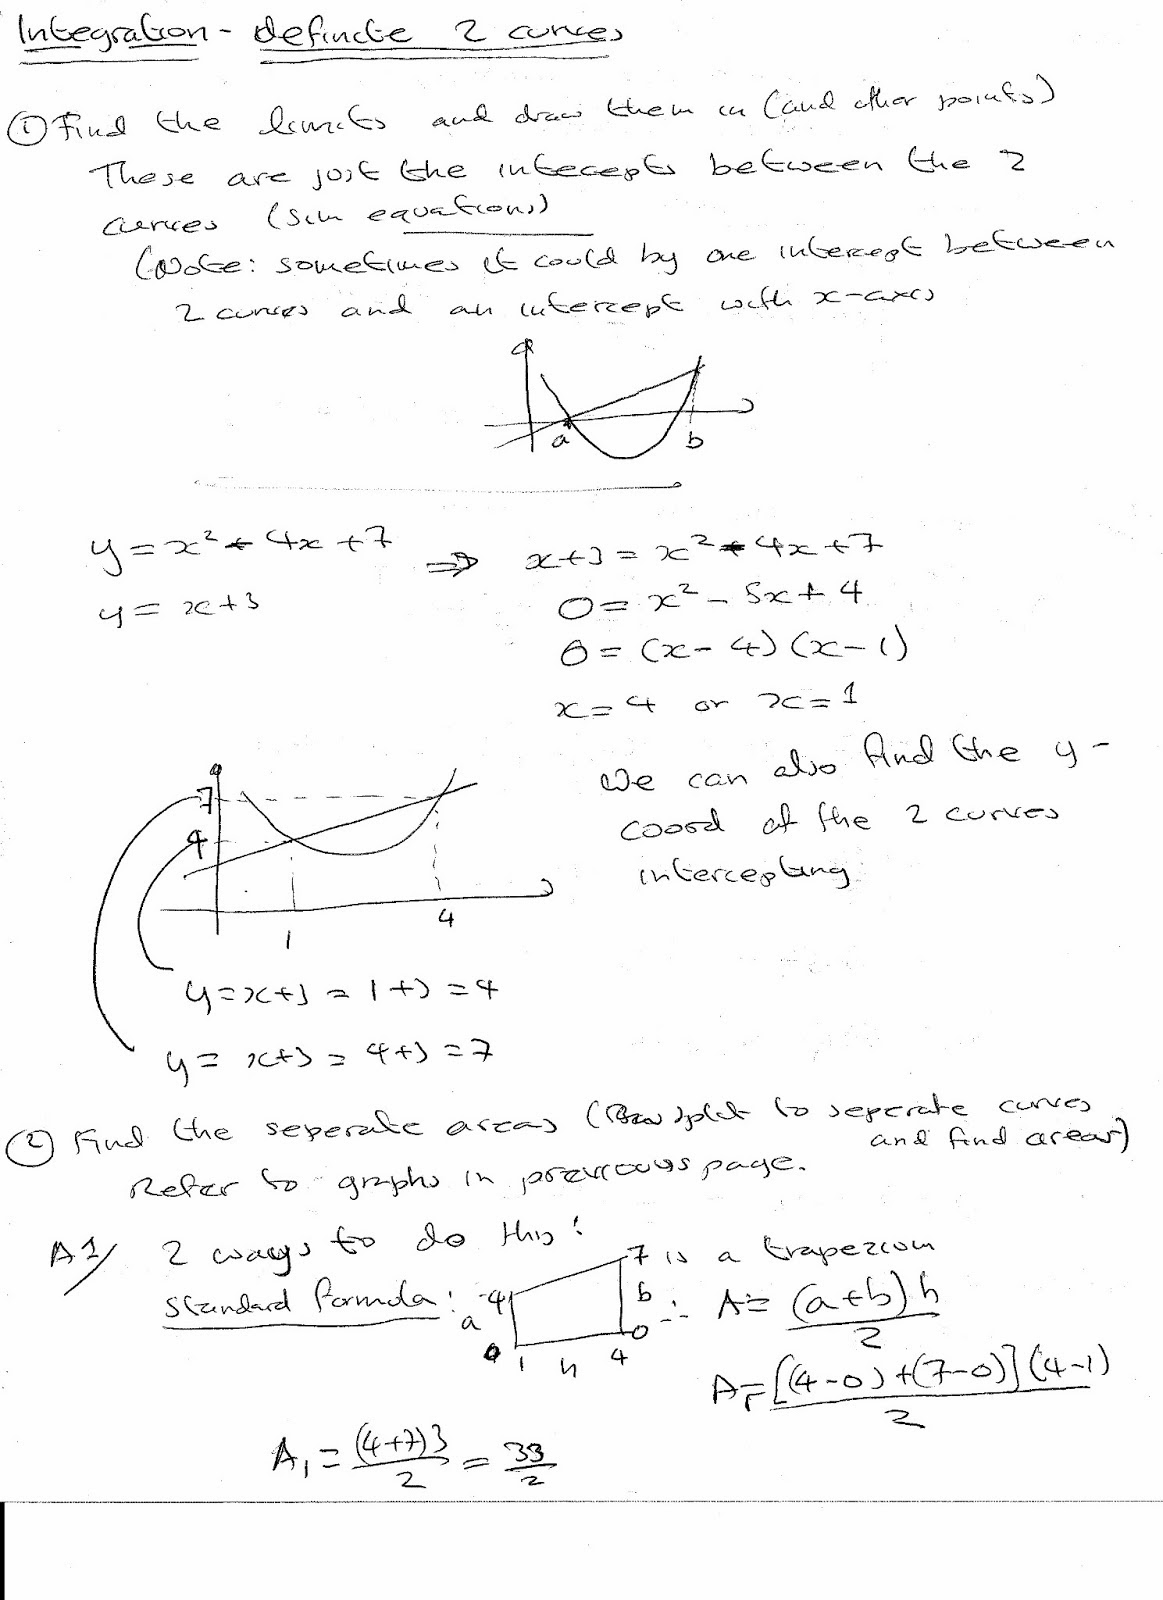 Integration - definite 2 curves
① Find the limits and draw them in (and other points)
These are just the intecepts between the 2
curves (sim equations)
(Note: sometimes it could by one intercept between
2 curves and an intercept with x-axis
a
b
y = x² - 4x + 7 ⇒ x+3 = x² - 4x + 7
y = x+3
0 = x² - 5x + 4
0 = (x-4)(x-1)
x=4 or x=1
We can also find the y-
coord of the 2 curves
intercepting
7
4
1
4
y=x+3 = 1+3 = 4
y = x+3 = 4+3 = 7
② Find the seperate areas ( split to seperate curves
and find areas)
Refer to graphs in previous page.
A1/ 2 ways to do this:
Standard formula:
4
a
7
b
0
0
1
h
4
is a trapezium
∴ A = (a+b)h / 2
A = [(4-0)+(7-0)](4-1) / 2
A₁ = (4+7)3 / 2 = 33 / 2